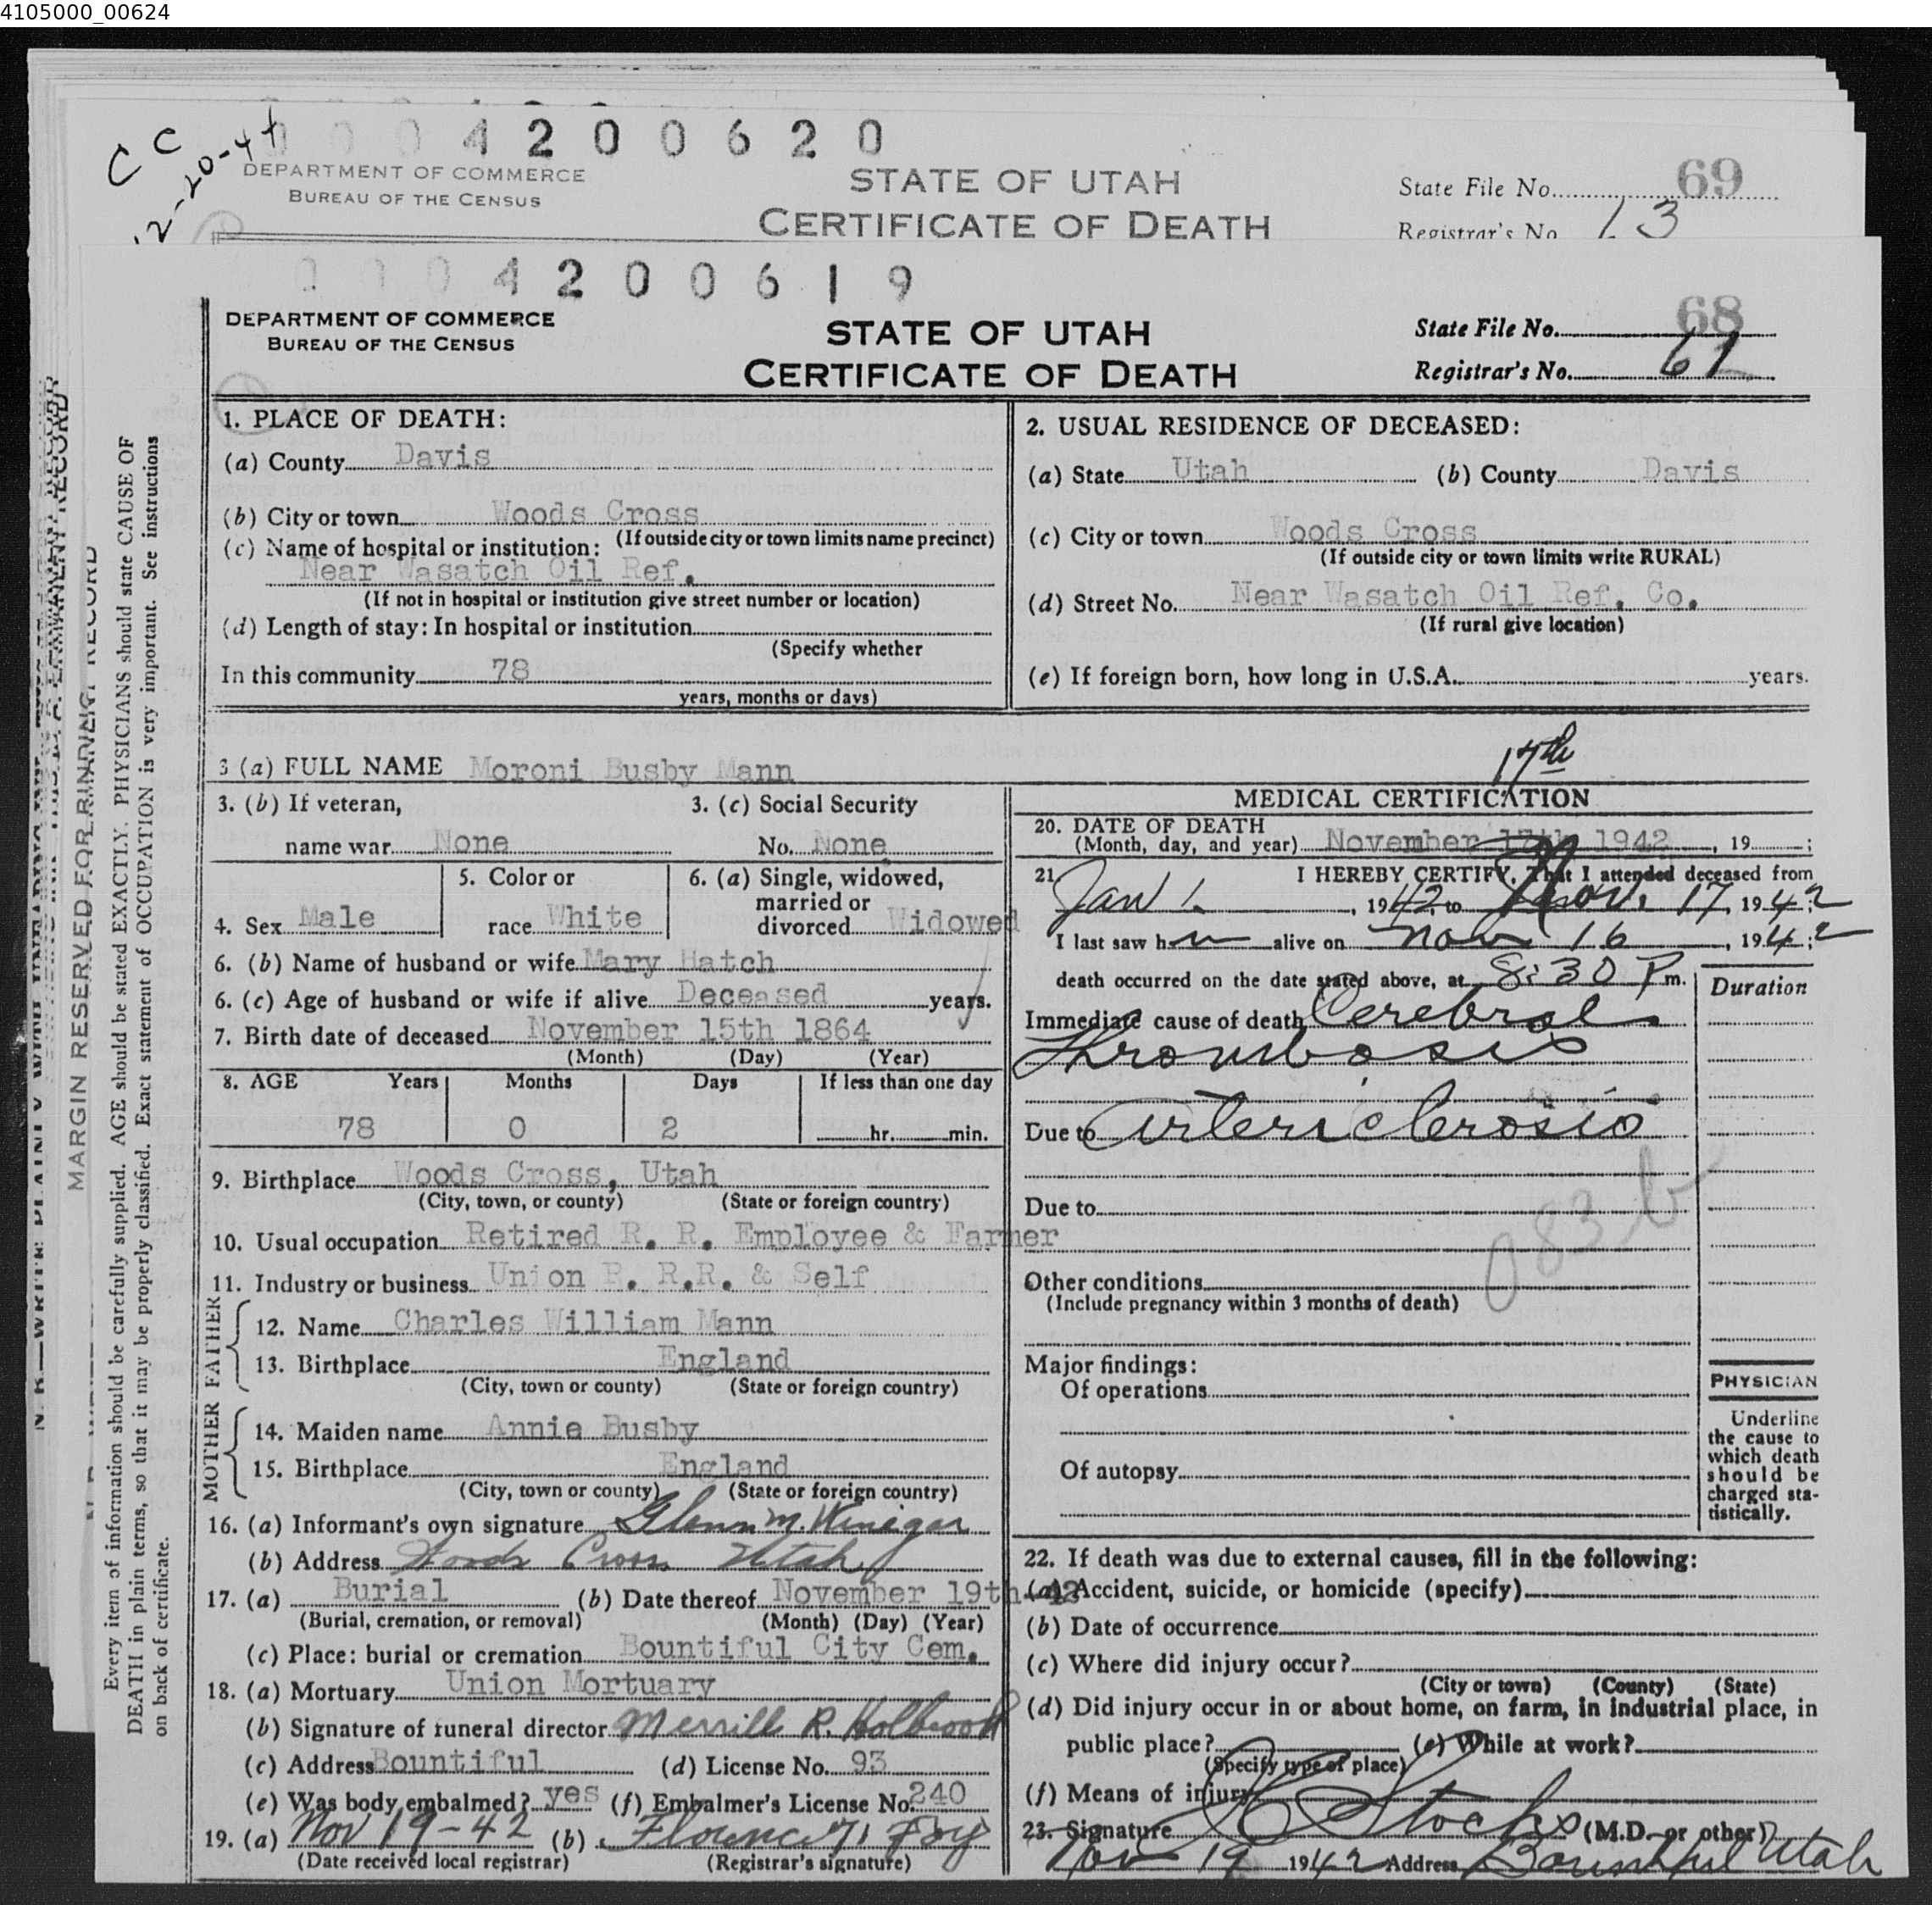 4105000_00624
C C
12-20-44
0004200620
DEPARTMENT OF COMMERCE
BUREAU OF THE CENSUS
STATE OF UTAH
CERTIFICATE OF DEATH
State File No. 69
Registrar's No. 13
0004200619
DEPARTMENT OF COMMERCE
BUREAU OF THE CENSUS
STATE OF UTAH
CERTIFICATE OF DEATH
State File No. 68
Registrar's No. 61
MARGIN RESERVED FOR BINDING
Every item of information should be carefully supplied. AGE should be stated EXACTLY. PHYSICIANS should state CAUSE OF
DEATH in plain terms, so that it may be properly classified. Exact statement of OCCUPATION is very important. See instructions
on back of certificate.
1. PLACE OF DEATH:
(a) County Davis
(b) City or town Woods Cross
(If outside city or town limits name precinct)
(c) Name of hospital or institution:
Near Wasatch Oil Ref.
(If not in hospital or institution give street number or location)
(d) Length of stay: In hospital or institution
(Specify whether
In this community 78
years, months or days)
2. USUAL RESIDENCE OF DECEASED:
(a) State Utah (b) County Davis
(c) City or town Woods Cross
(If outside city or town limits write RURAL)
(d) Street No. Near Wasatch Oil Ref. Co.
(If rural give location)
(e) If foreign born, how long in U.S.A. years.
3 (a) FULL NAME Moroni Busby Mann
3. (b) If veteran,
name war None
3. (c) Social Security
No. None
4. Sex Male
5. Color or
race White
6. (a) Single, widowed,
married or
divorced Widowed
6. (b) Name of husband or wife Mary Hatch
6. (c) Age of husband or wife if alive Deceased years.
7. Birth date of deceased November 15th 1864
(Month) (Day) (Year)
8. AGE Years Months Days If less than one day
78 0 2 hr. min.
9. Birthplace Woods Cross, Utah
(City, town, or county) (State or foreign country)
10. Usual occupation Retired R. R. Employee & Farmer
11. Industry or business Union P. R.R. & Self
FATHER
12. Name Charles William Mann
13. Birthplace England
(City, town or county) (State or foreign country)
MOTHER
14. Maiden name Annie Busby
15. Birthplace England
(City, town or county) (State or foreign country)
16. (a) Informant's own signature Glenn M. Winegar
(b) Address Woods Cross Utah
17. (a) Burial (b) Date thereof November 19th-42
(Burial, cremation, or removal) (Month) (Day) (Year)
(c) Place: burial or cremation Bountiful City Cem.
18. (a) Mortuary Union Mortuary
(b) Signature of funeral director Merrill R. Holbrook
(c) Address Bountiful (d) License No. 93
(e) Was body embalmed? yes (f) Embalmer's License No. 240
19. (a) Nov 19-42 (b) Florence Foy
(Date received local registrar) (Registrar's signature)
17th
MEDICAL CERTIFICATION
20. DATE OF DEATH
(Month, day, and year) November 17th 1942, 19 ;
21. I HEREBY CERTIFY, That I attended deceased from
Jan 1, 1942, to Nov. 17, 1942;
I last saw him alive on Nov 16, 1942;
death occurred on the date stated above, at 8:30 P m.
Duration
Immediate cause of death Cerebral
Thrombosis
Due to Artericlerosis
Due to
083b
Other conditions
(Include pregnancy within 3 months of death)
Major findings:
Of operations
Of autopsy
PHYSICIAN
Underline
the cause to
which death
should be
charged sta-
tistically.
22. If death was due to external causes, fill in the following:
(a) Accident, suicide, or homicide (specify)
(b) Date of occurrence
(c) Where did injury occur?
(City or town) (County) (State)
(d) Did injury occur in or about home, on farm, in industrial place, in
public place? (e) While at work?
(Specify type of place)
(f) Means of injury
23. Signature Stocks (M.D. or other)
Nov 19 1942 Address Bountiful Utah